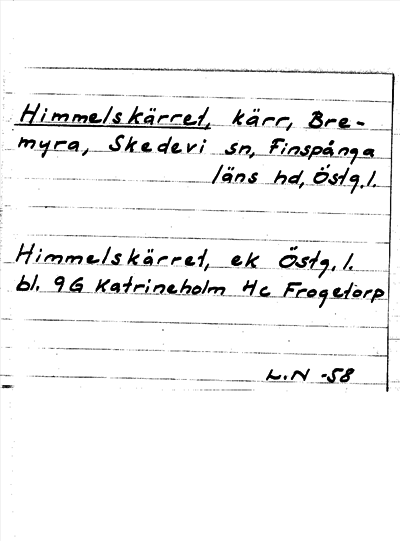 Himmelskärret, kärr, Bre-
myra, Skedevi sn, Finspånga
läns hd, Östg.l.
Himmelskärret, ek Östg.l.
bl. 9G Katrineholm 4c Frogetorp
L.N -58